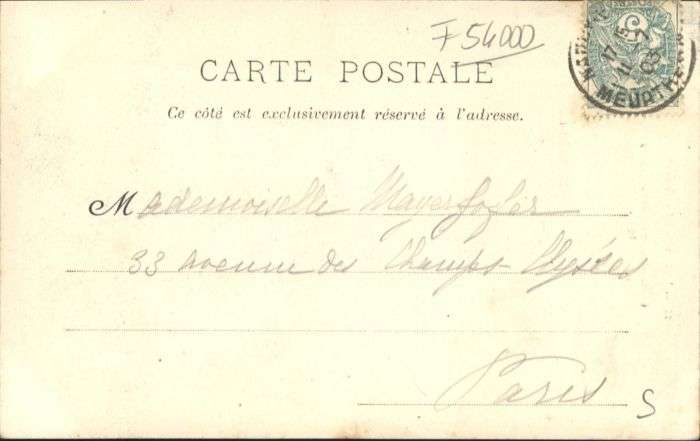 F54000
CARTE POSTALE
Ce côté est exclusivement réservé à l'adresse.
Mademoiselle
33 avenue des Champs-Elysées
Paris
S
5
MEURTHE